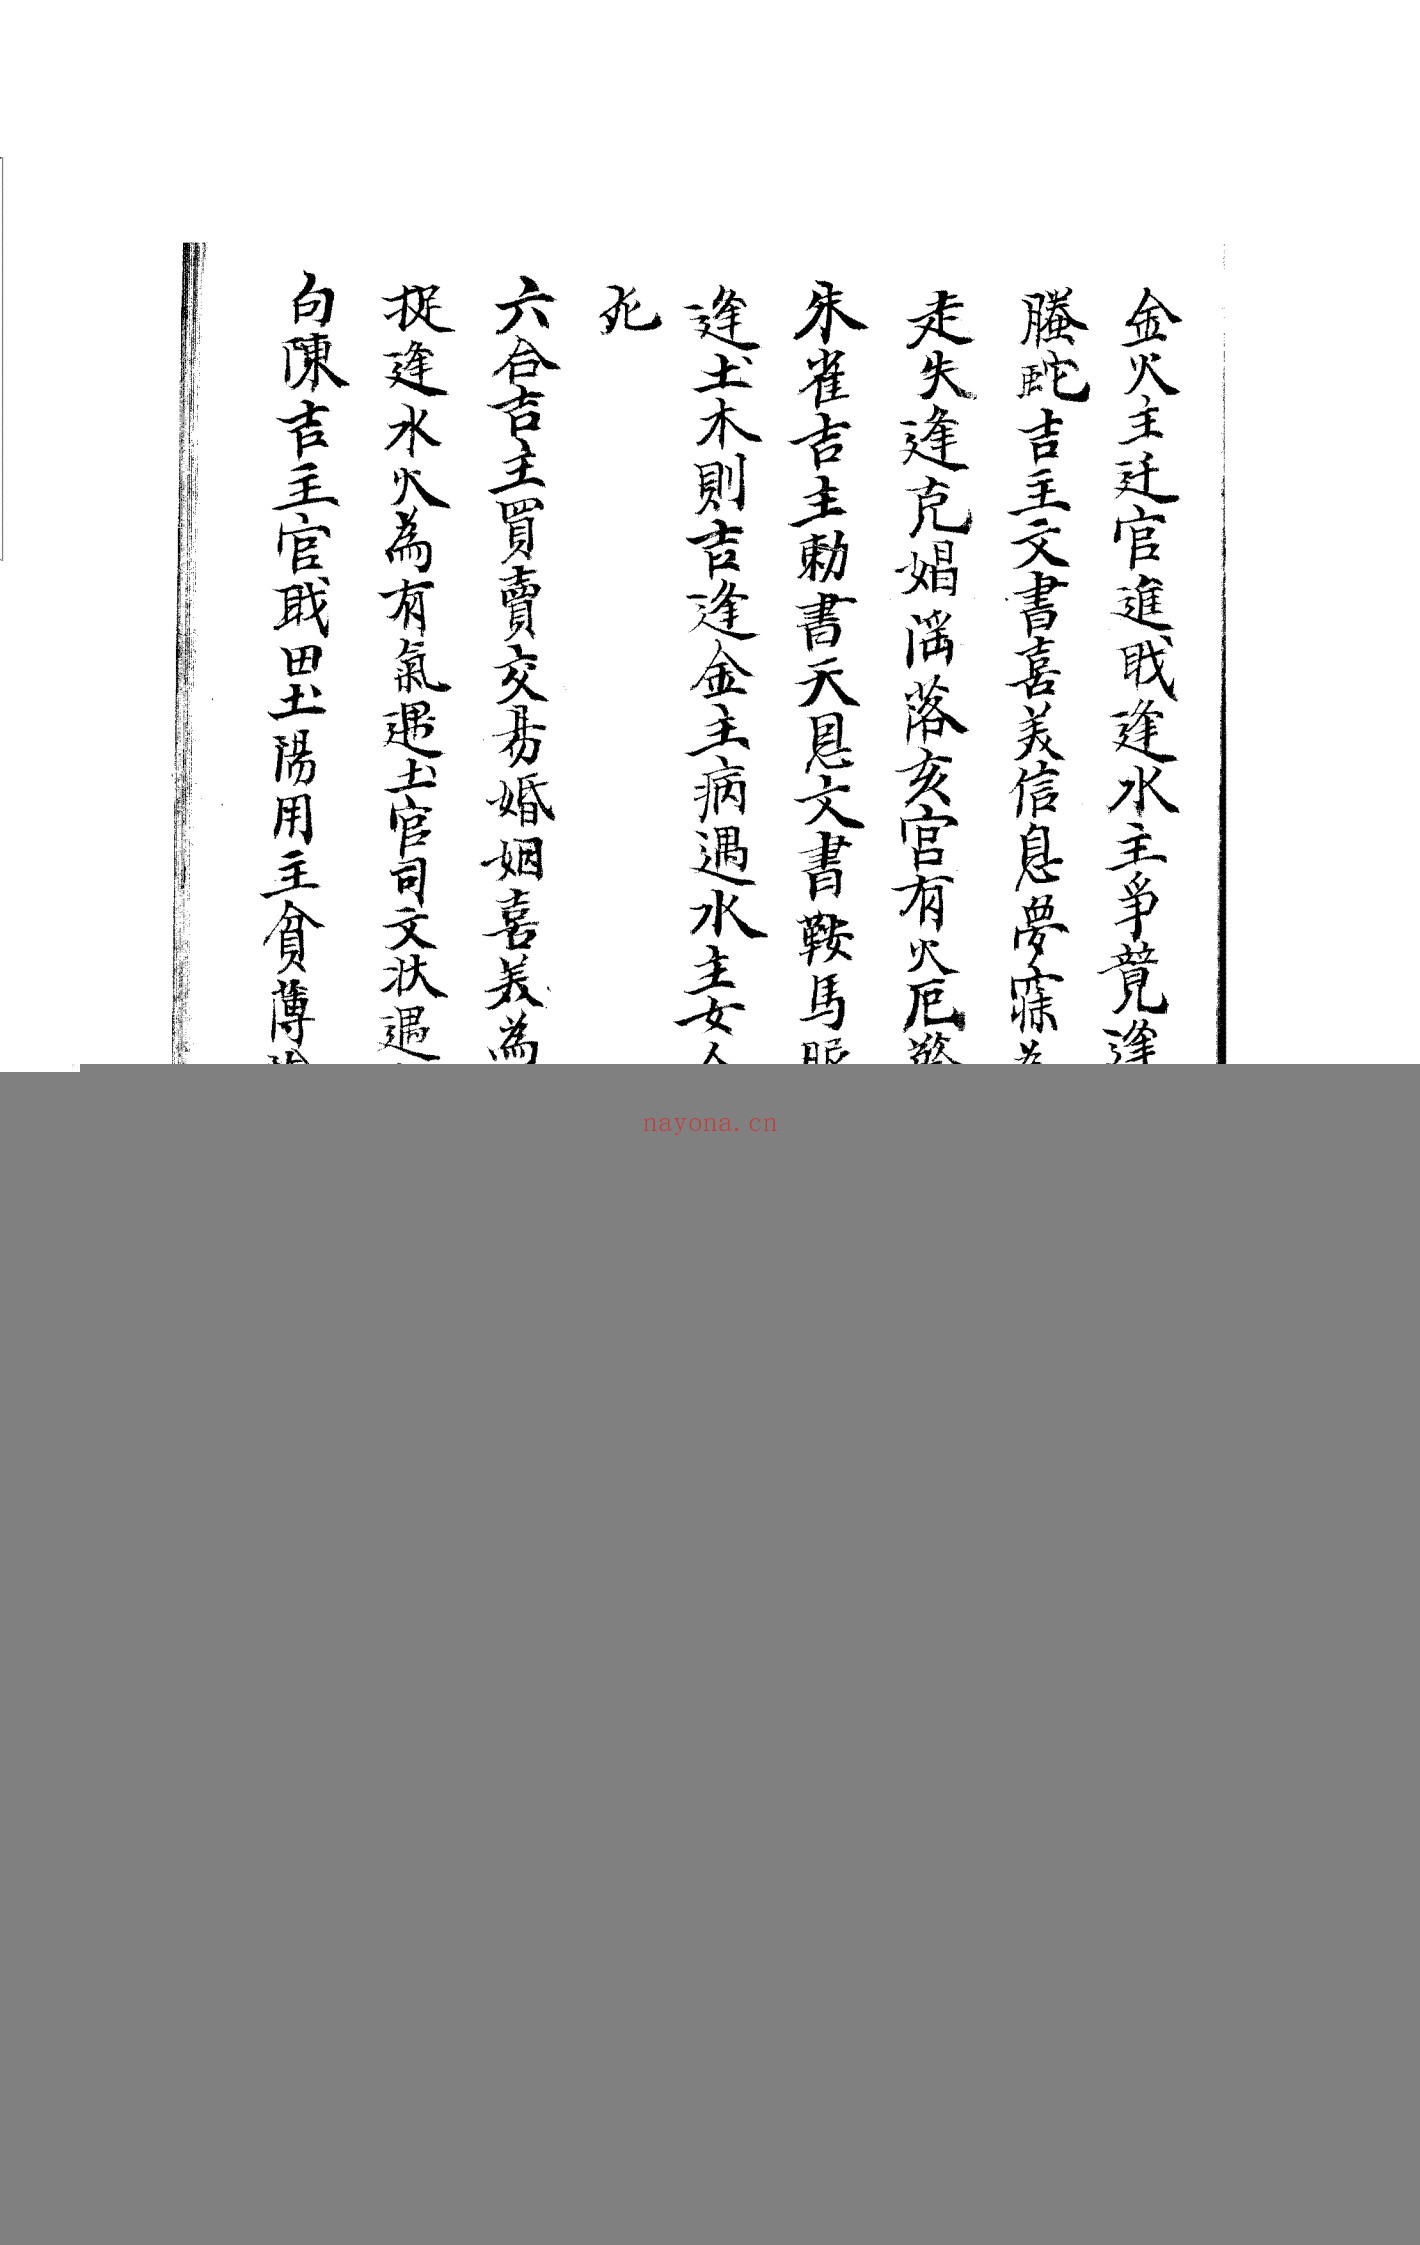 金火主迁官進戝逢水主爭競逢
螣虵吉主文書喜美信息夢寐為
走失逢克娼滛落亥宮有火厄驚
朱雀吉主勅書天恩文書鞍馬服
逢圡木則吉逢金主病遇水主女人
死
六合吉主買賣交易婚姻喜美為
捉逢水火為有氣遇圡官司文狀遇
勾陳吉主官戝田圡陽用主貧薄陰
nayona.cn